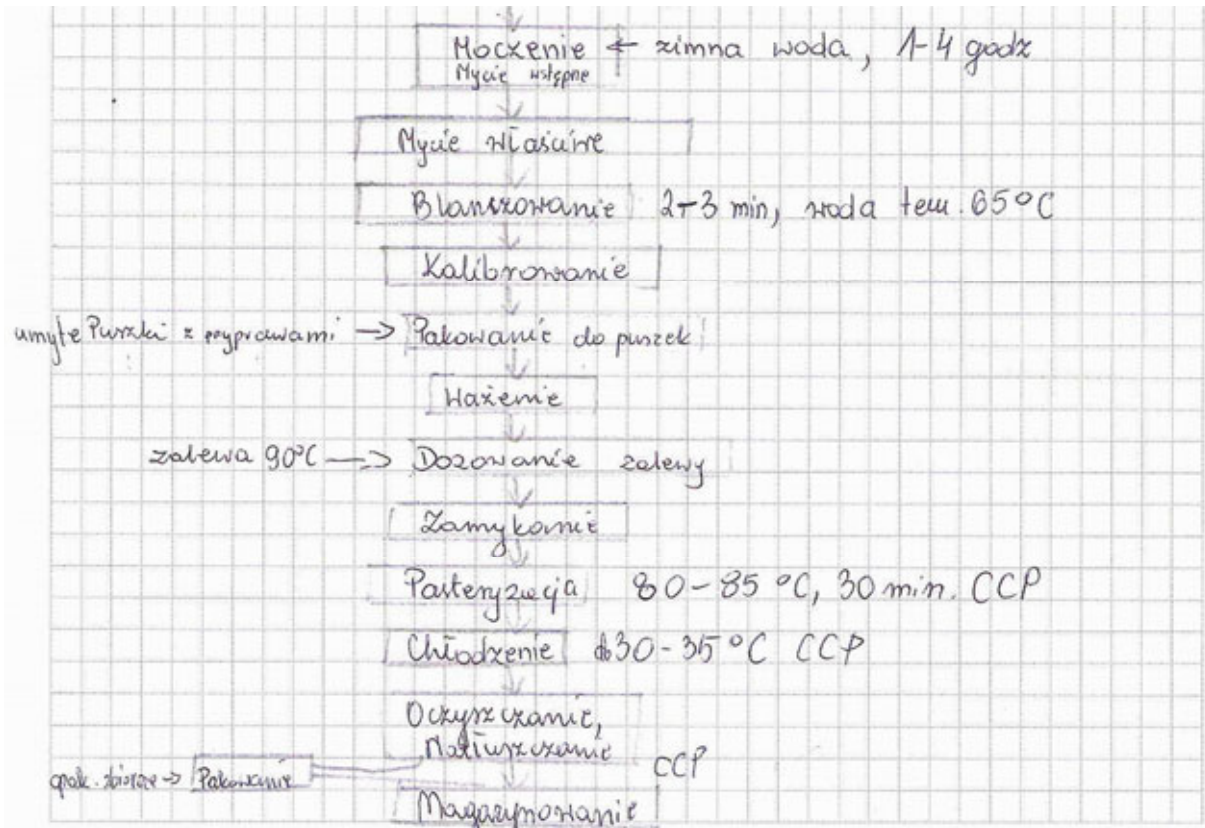 Moczenie ← zimna woda, 1-4 godz
Mycie wstępne
Mycie właściwe
Blanszowanie 2-3 min, woda tem. 65°C
Kalibrowanie
umyte Puszki z przyprawami → Pakowanie do puszek
Ważenie
zalewa 90°C → Dozowanie zalewy
Zamykanie
Pasteryzacja 80-85 °C, 30 min. CCP
Chłodzenie do 30-35°C CCP
Oczyszczanie,
Natłuszczanie
CCP
opak. zbiorcze → Pakowanie
Magazynowanie